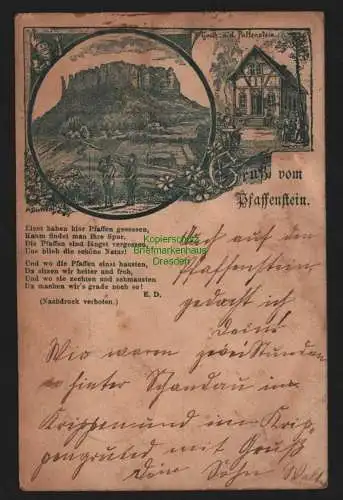 Gruß vom
Pfaffenstein.
Einst haben hier Pfaffen gesessen,
Kaum findet man ihre Spur,
Die Pfaffen sind längst vergessen,
Uns blieb die schöne Natur!
Und wo die Pfaffen einst hausten,
Da sitzen wir heiter und froh,
Und wo sie zechten und schmausten
Da machen wir's grade noch so!
E. D.
(Nachdruck verboten.)
Kopierschutz
Briefmarkenhaus
Dresden
Hoch auf den
Pfaffenstein
gedacht ich
Dein!
Wir waren zwei Stunden
hinter Schandau im
Krippenmund im Krip-
pengrund mit Gruß
Dein Sohn